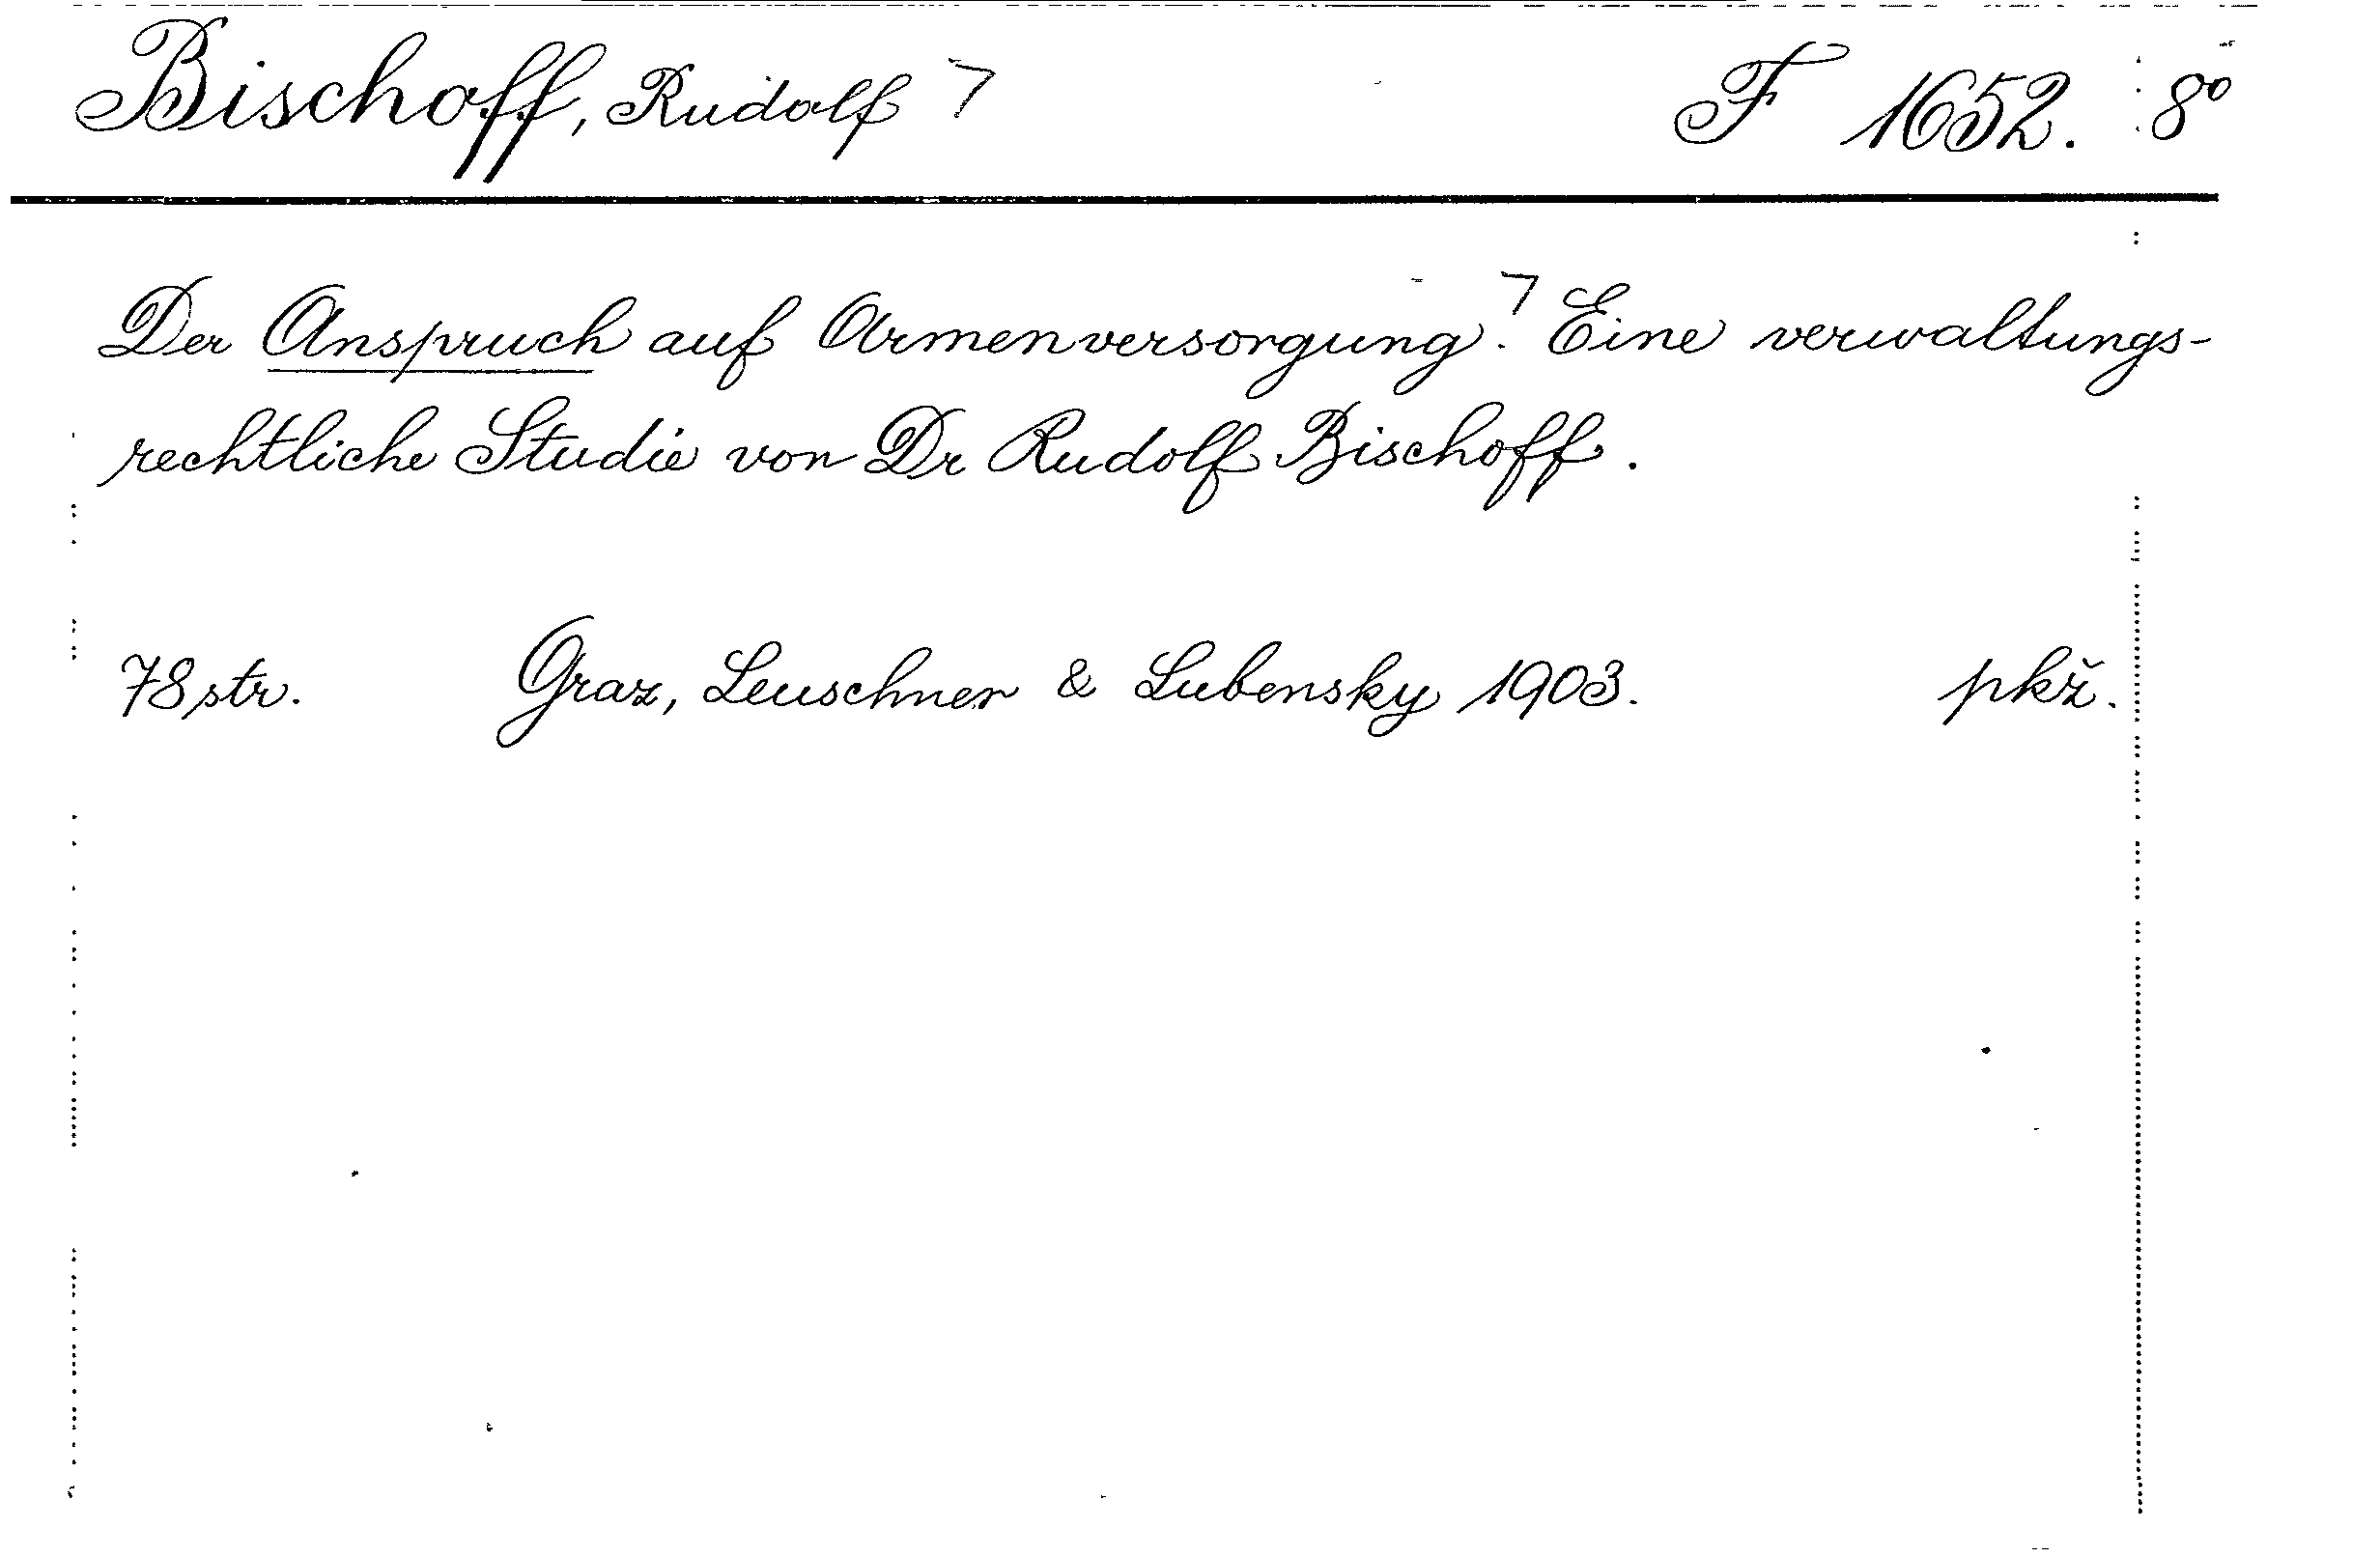 Bischoff, Rudolf ⌝ F 1652. 8⁰
Der Anspruch auf Armenversorgung.⌝ Eine verwaltungs-
rechtliche Studie von Dr Rudolf Bischoff.
78 str. Graz, Leuschner & Lubensky 1903. pkž.